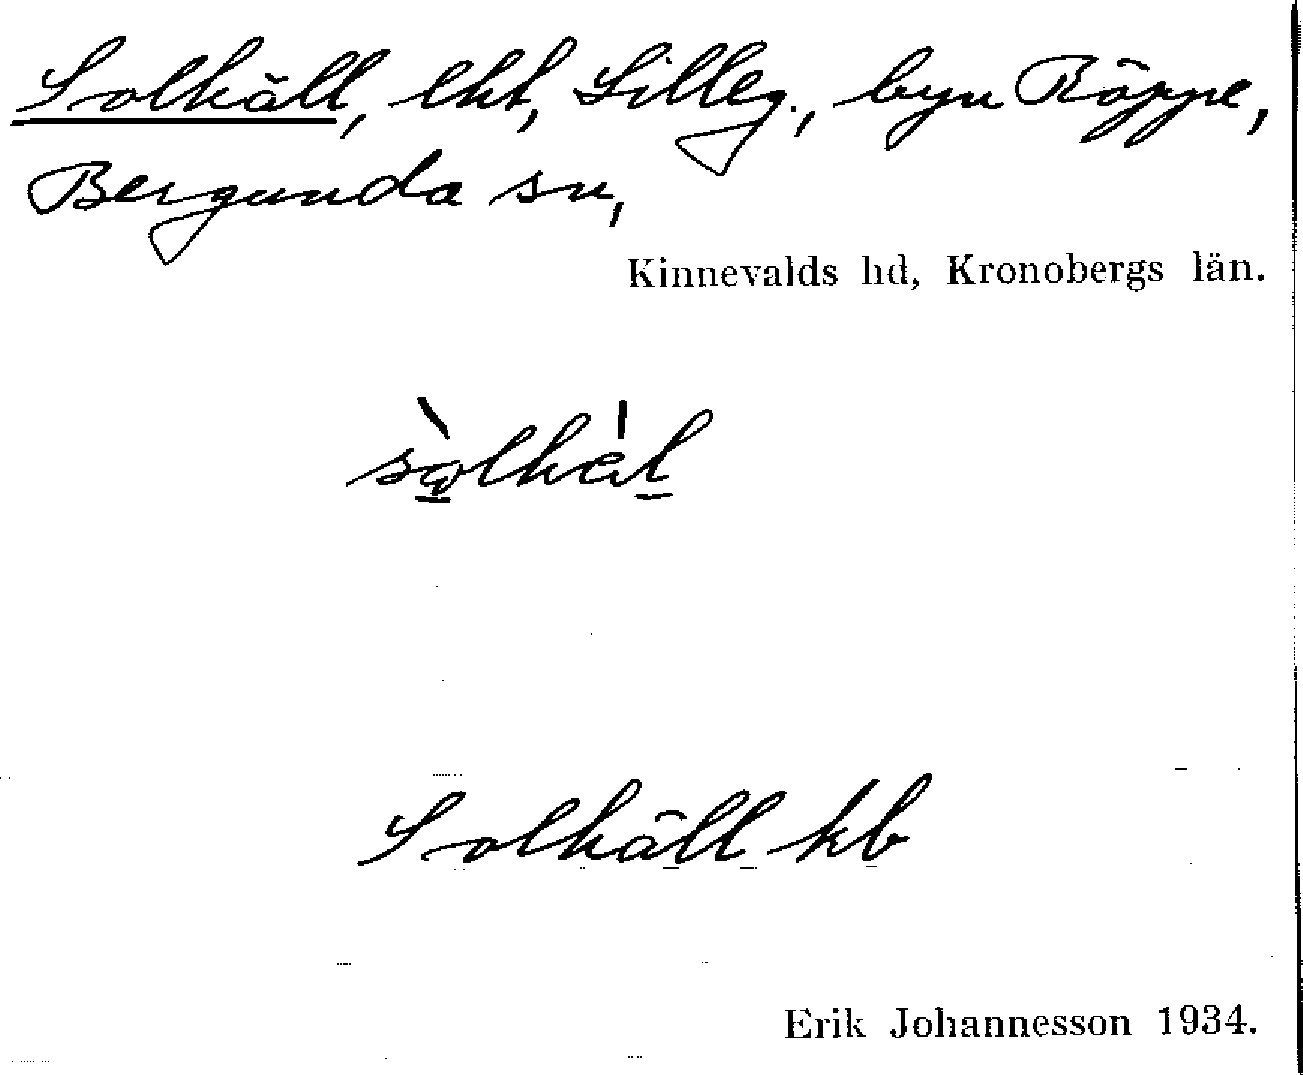 Solhäll, lht, Lilleg., byn Räppe,
Bergunda sn,
Kinnevalds hd, Kronobergs län.
Solhäll kb
Erik Johannesson 1934.